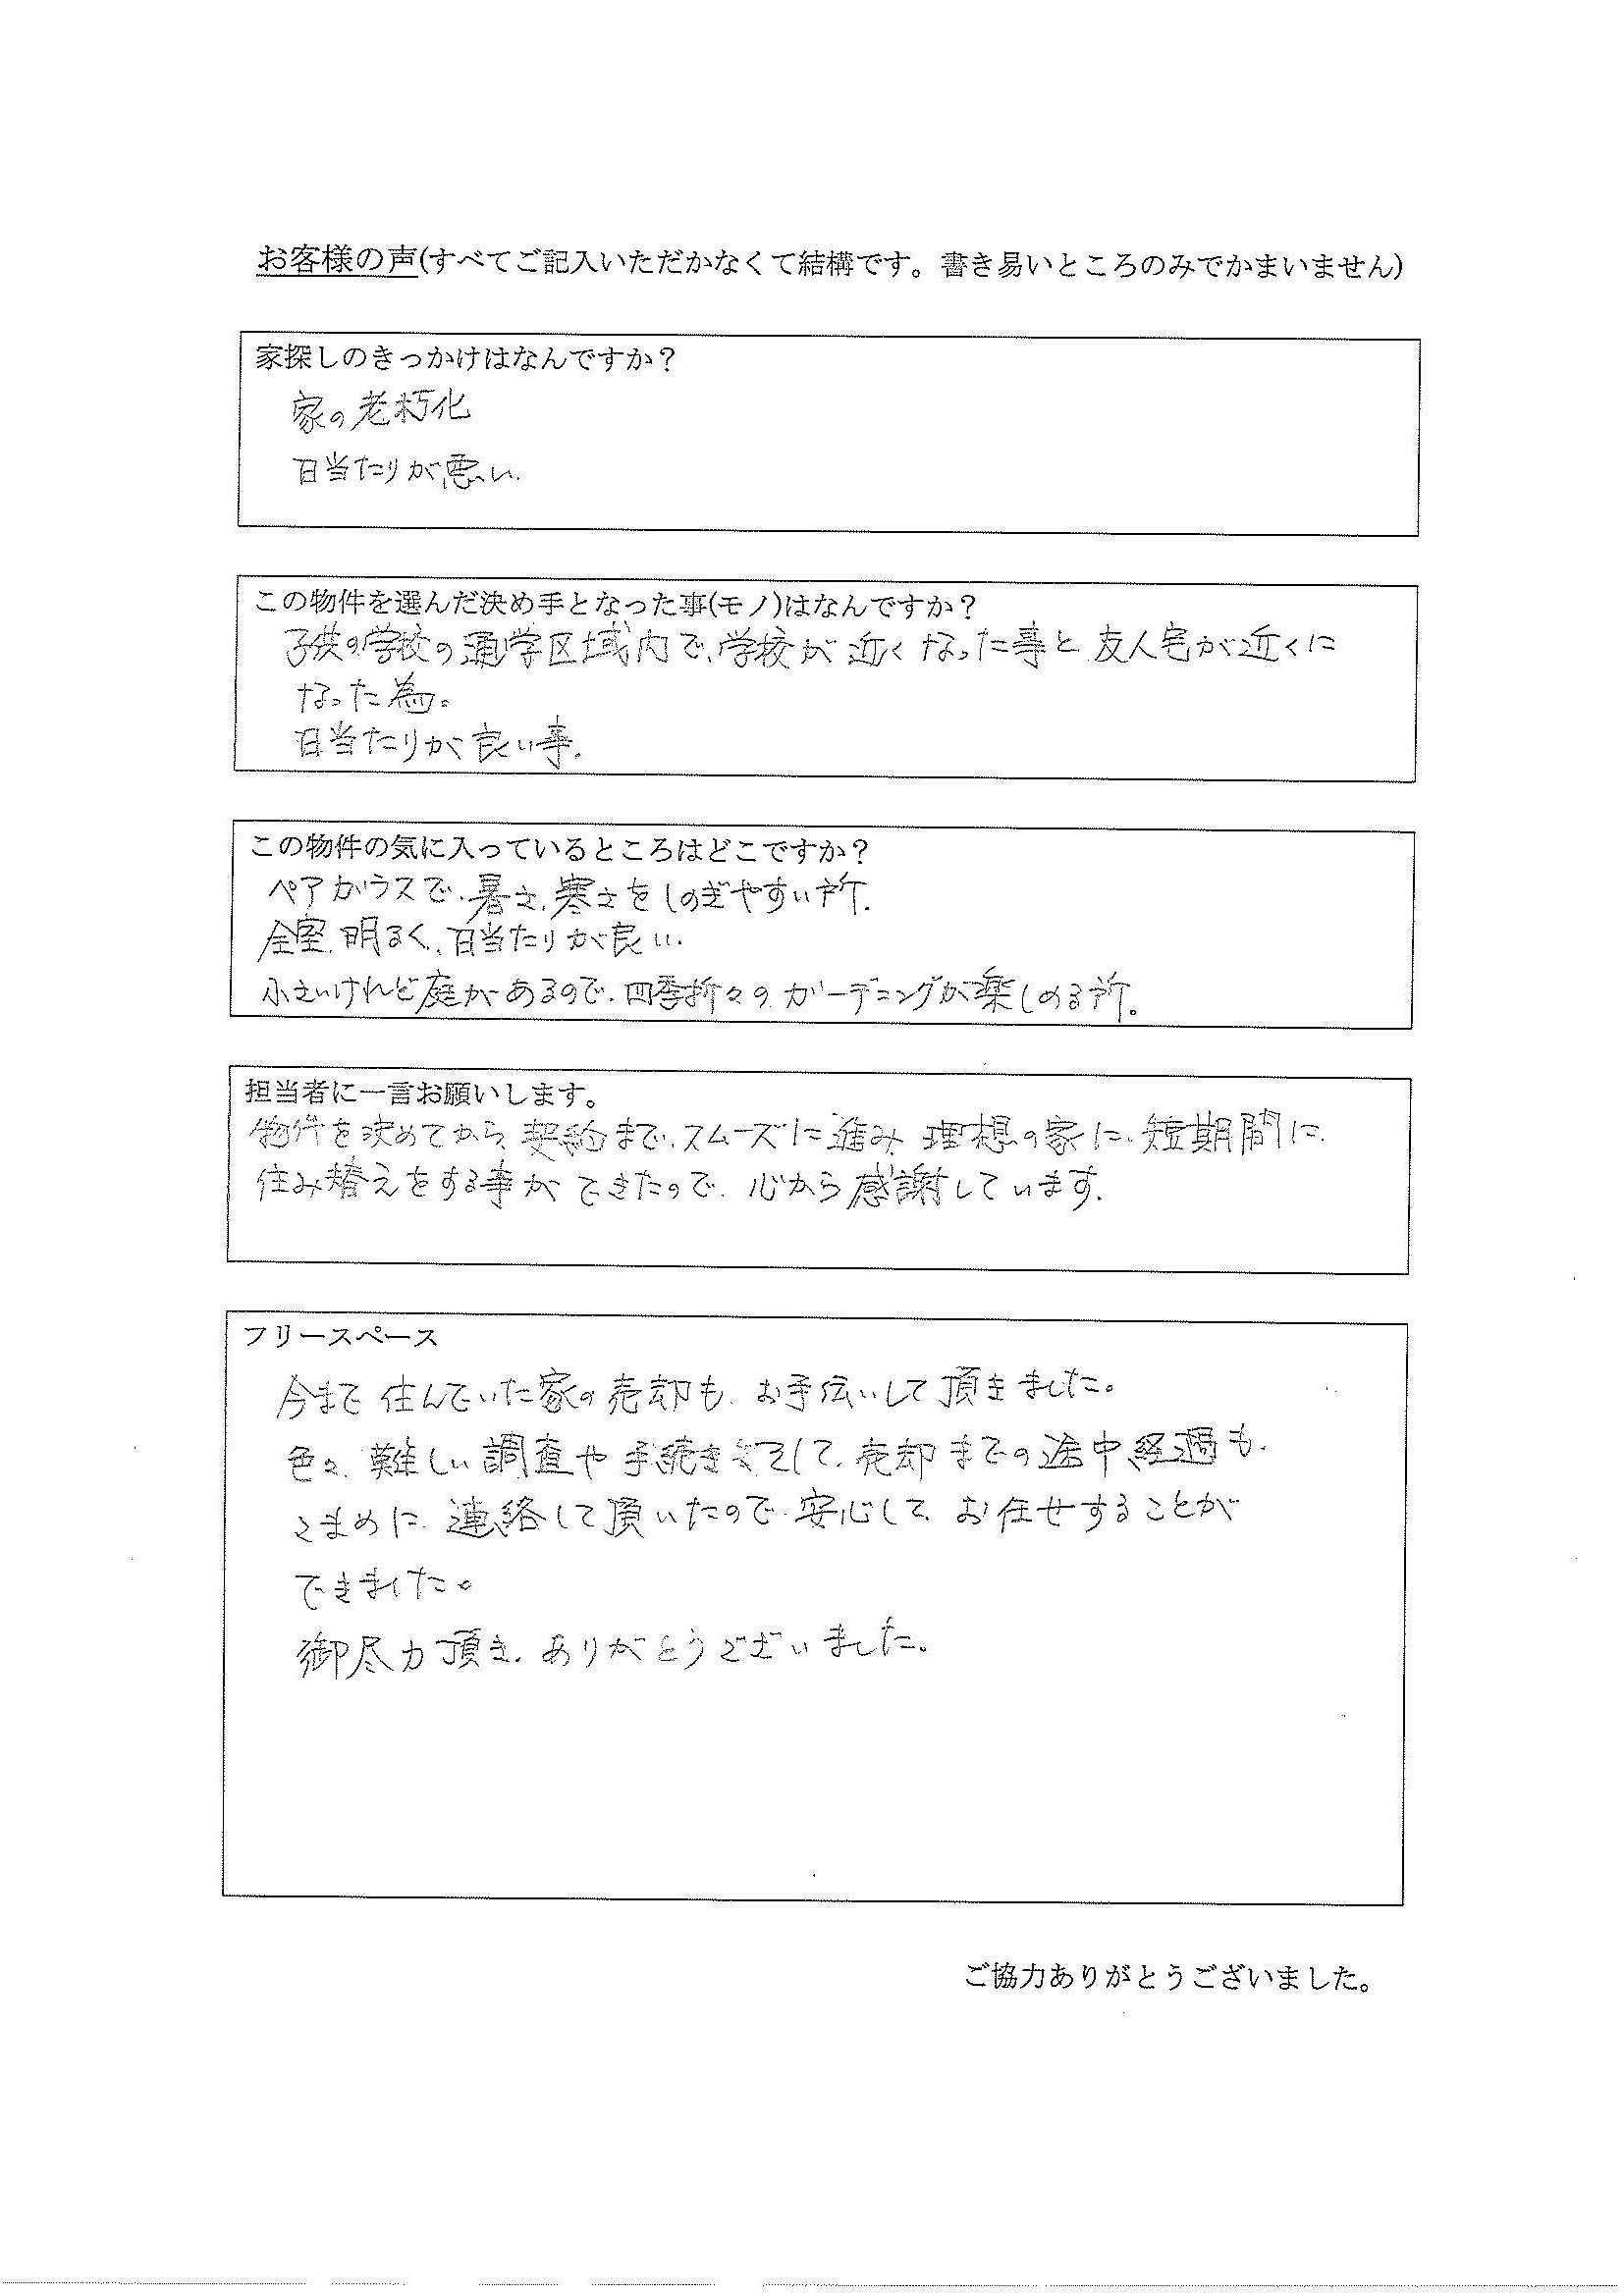 お客様の声(すべてご記入いただかなくて結構です。書き易いところのみでかまいません)
家探しのきっかけはなんですか？
家の老朽化
日当たりが悪い.
この物件を選んだ決め手となった事(モノ)はなんですか？
子供の学校の通学区域内で、学校が近くなった事と、友人宅が近くに
なった為。
日当たりが良い事.
この物件の気に入っているところはどこですか？
ペアガラスで、暑さ、寒さをしのぎやすい所.
全室、明るく、日当たりが良い.
小さいけれど庭があるので、四季折々のガーデニングが楽しめる所。
担当者に一言お願いします。
物件を決めてから、契約まで、スムーズに進み、理想の家に、短期間に、
住み替えをする事ができたので、心から感謝しています.
フリースペース
今まで住んでいた家の売却も、お手伝いして頂きました。
色々、難しい調査や手続き、そして、売却までの途中経過も、
こまめに、連絡して頂いたので、安心して、お任せすることが
できました。
御尽力頂き、ありがとうございました。
ご協力ありがとうございました。